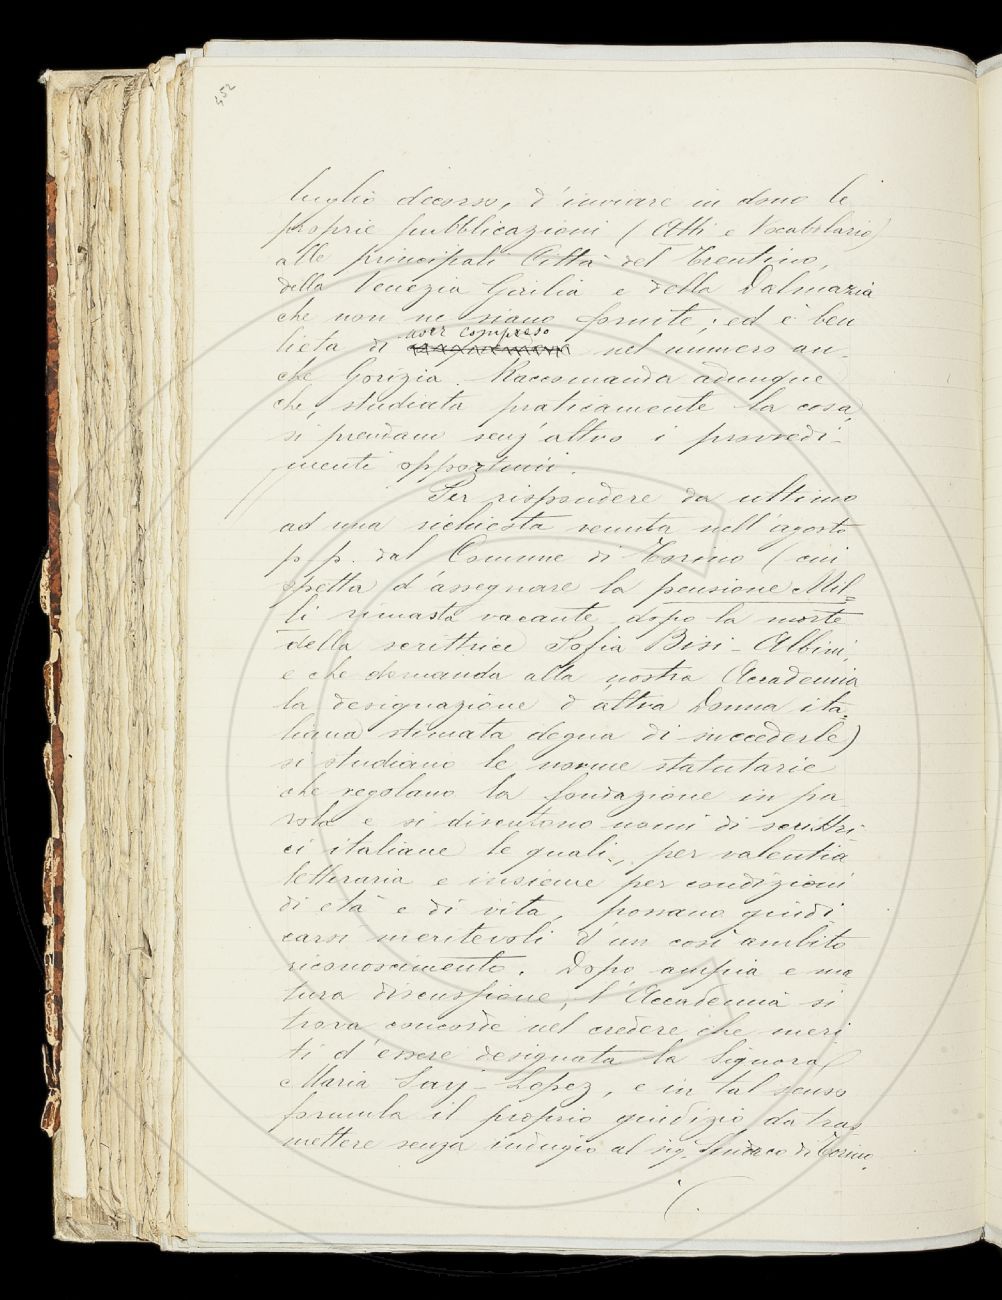 452
luglio decorso, d'inviare in dono le
proprie pubblicazioni (Atti e Vocabolario)
alle principali Città del Trentino,
della Venezia Giulia e della Dalmazia
che non ne siano fornite; ed è ben
aver compreso
lieta di nel numero an-
che Gorizia. Raccomanda adunque
che, studiata praticamente la cosa,
si prendano senz'altro i provvedi-
menti opportuni.
Per rispondere da ultimo
ad una richiesta venuta nell'agosto
p. p. dal Comune di Torino (cui
spetta d'assegnare la pensione Mil-
li rimasta vacante dopo la morte
della scrittrice Sofia Bisi-Albini,
e che domanda alla nostra Accademia
la designazione d'altra Donna ita-
liana stimata degna di succederle)
si studiano le norme statutarie
che regolano la fondazione in pa-
rola e si discutono nomi di scrittri-
ci italiane le quali, per valentia
letteraria e insieme per condizioni
di età e di vita, possano giudi
carsi meritevoli d'un così ambito
riconoscimento. Dopo ampia e ma
tura discussione, l'Accademia si
trova concorde nel credere che meri
ti d'essere designata la Signora
Maria Savj-Lopez, e in tal senso
formula il proprio giudizio da tras
mettere senza indugio al sig. Sindaco di Torino.